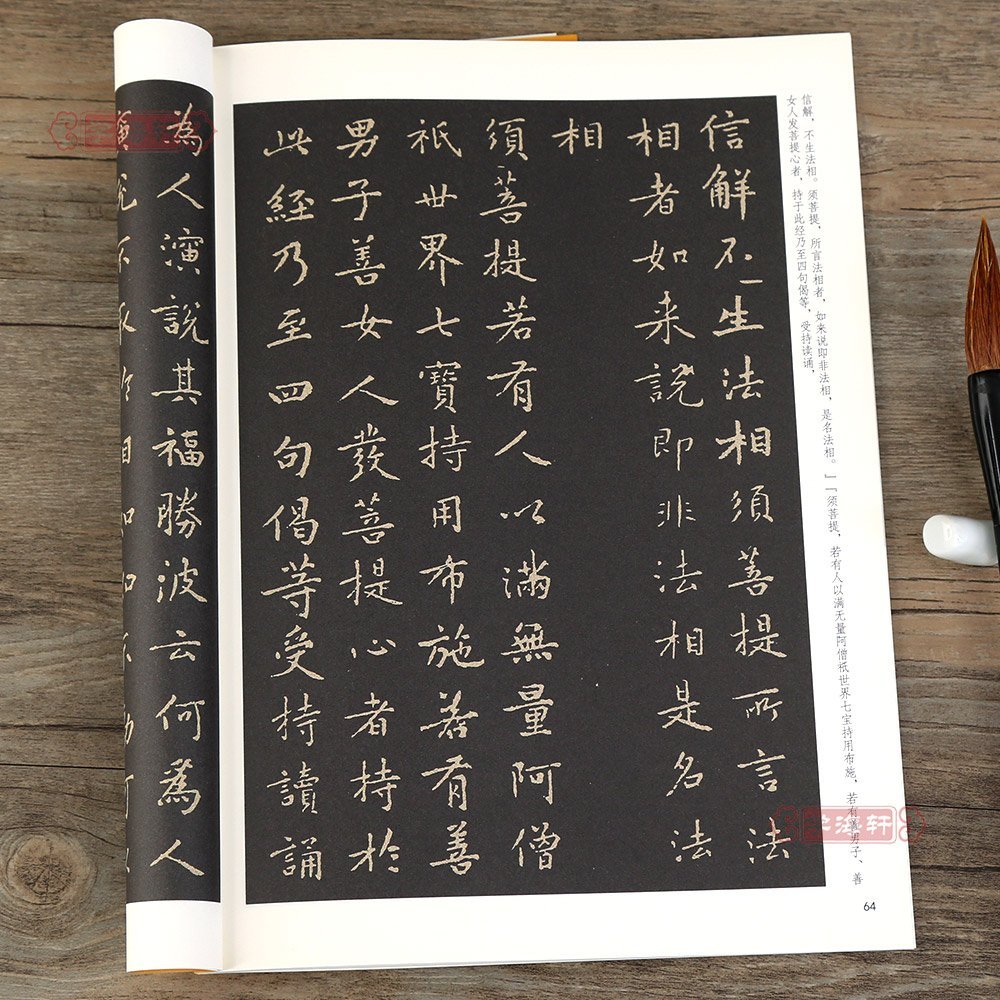 信解不生法相須菩提所言法
相者如来說即非法相是名法
相
須菩提若有人以滿無量阿僧
祇世界七寶持用布施若有善
男子善女人發菩提心者持於
此經乃至四句偈等受持讀誦
為人演說其福勝波云何為人
信解，不生法相。须菩提，所言法相者，如来说即非法相，是名法相。」「须菩提，若有人以满无量阿僧祇世界七宝持用布施，若有善男子、善
女人发菩提心者，持于此经乃至四句偈等，受持读诵，
64